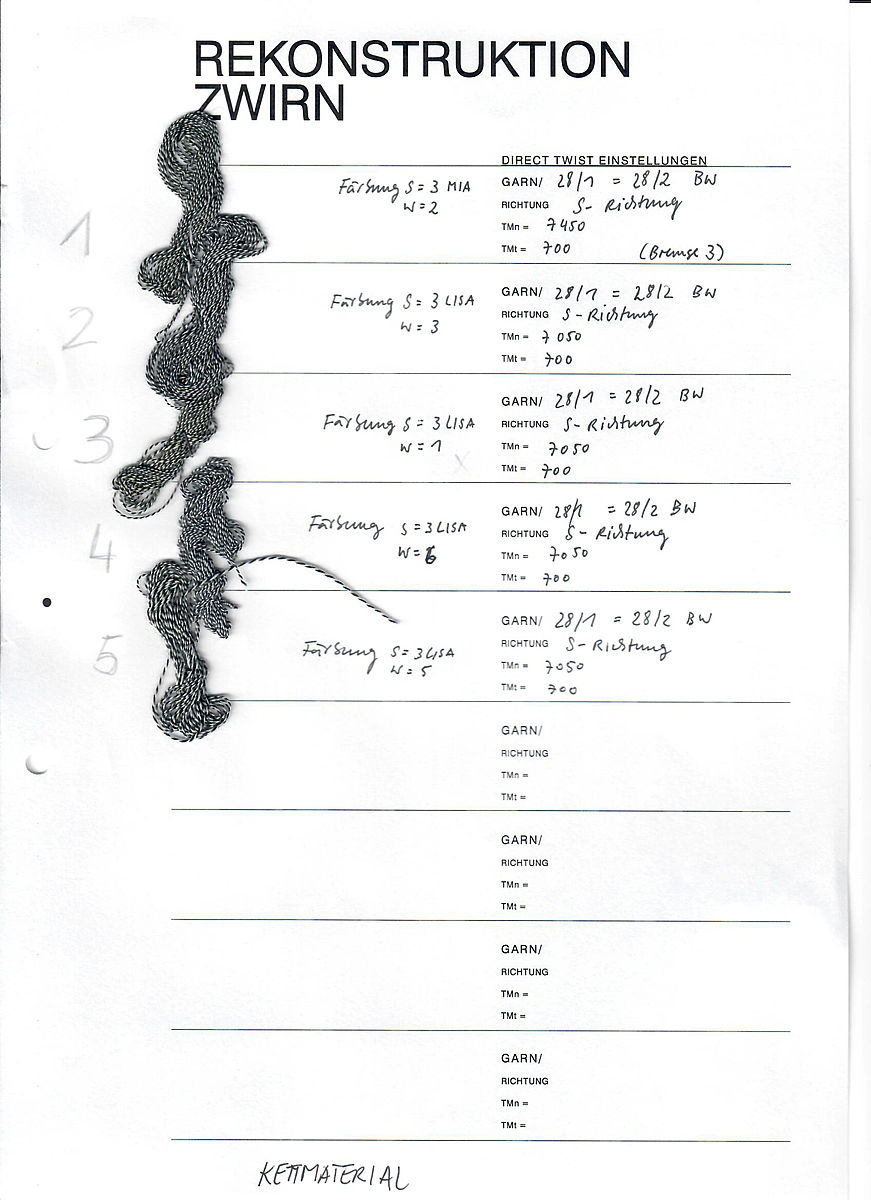 REKONSTRUKTION
ZWIRN
DIRECT TWIST EINSTELLUNGEN
1
Färbung S = 3 MIA
W = 2
GARN/ 28/1 = 28/2 BW
RICHTUNG S- Richtung
TMn = 7450
TMt = 700 (Bremse 3)
2
Färbung S = 3 LISA
W = 3
GARN/ 28/1 = 28/2 BW
RICHTUNG S-Richtung
TMn = 7050
TMt = 700
3
Färbung S = 3 LISA
W = 1
x
GARN/ 28/1 = 28/2 BW
RICHTUNG S-Richtung
TMn = 7050
TMt = 700
4
Färbung S = 3 LISA
W = 6
GARN/ 28/1 = 28/2 BW
RICHTUNG S-Richtung
TMn = 7050
TMt = 700
5
Färbung S = 3 LISA
W = 5
GARN/ 28/1 = 28/2 BW
RICHTUNG S-Richtung
TMn = 7050
TMt = 700
GARN/
RICHTUNG
TMn =
TMt =
GARN/
RICHTUNG
TMn =
TMt =
GARN/
RICHTUNG
TMn =
TMt =
GARN/
RICHTUNG
TMn =
TMt =
KETTMATERIAL